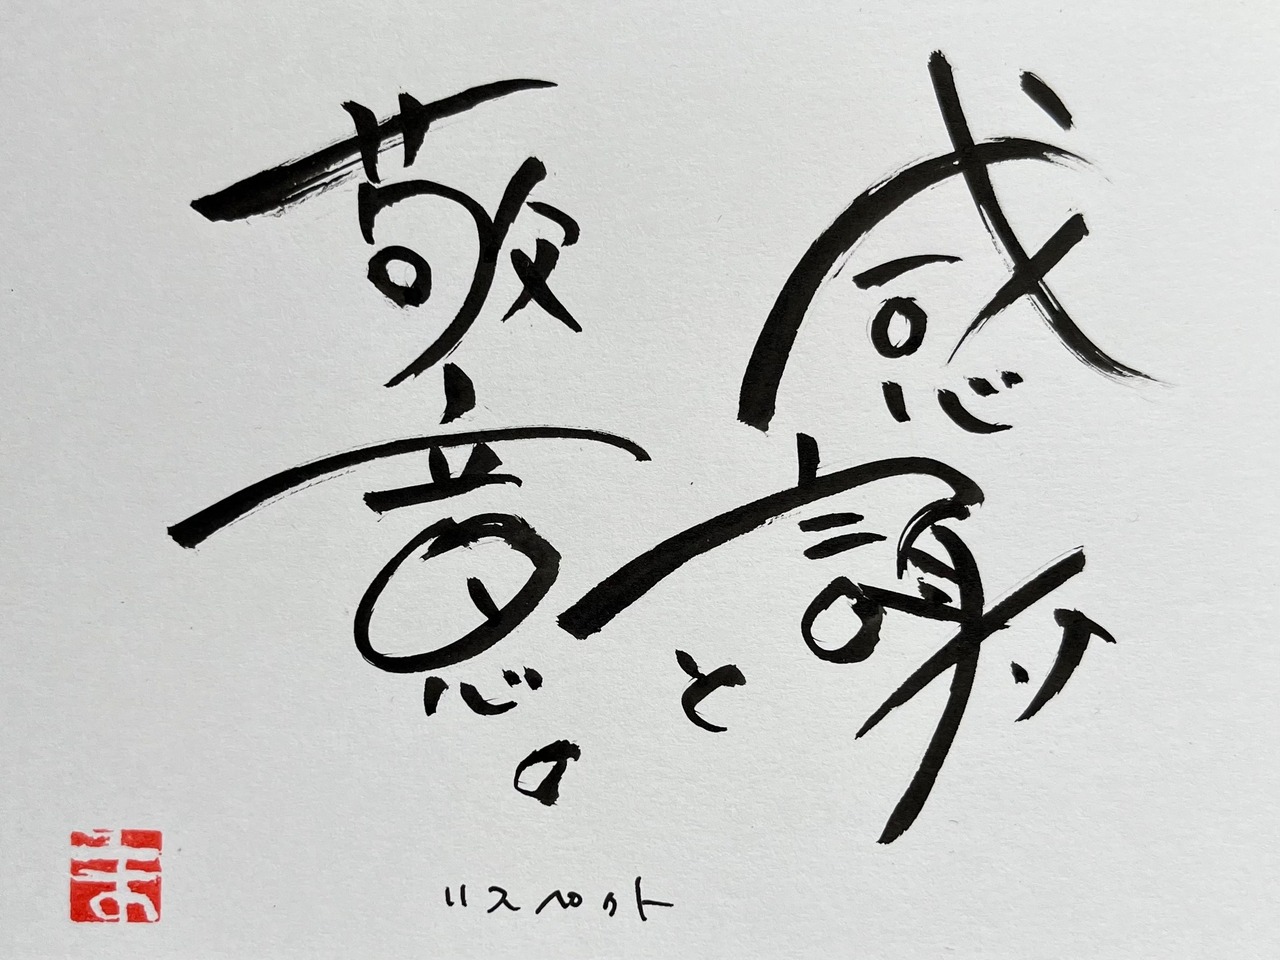 感謝と
敬意。
リスペクト